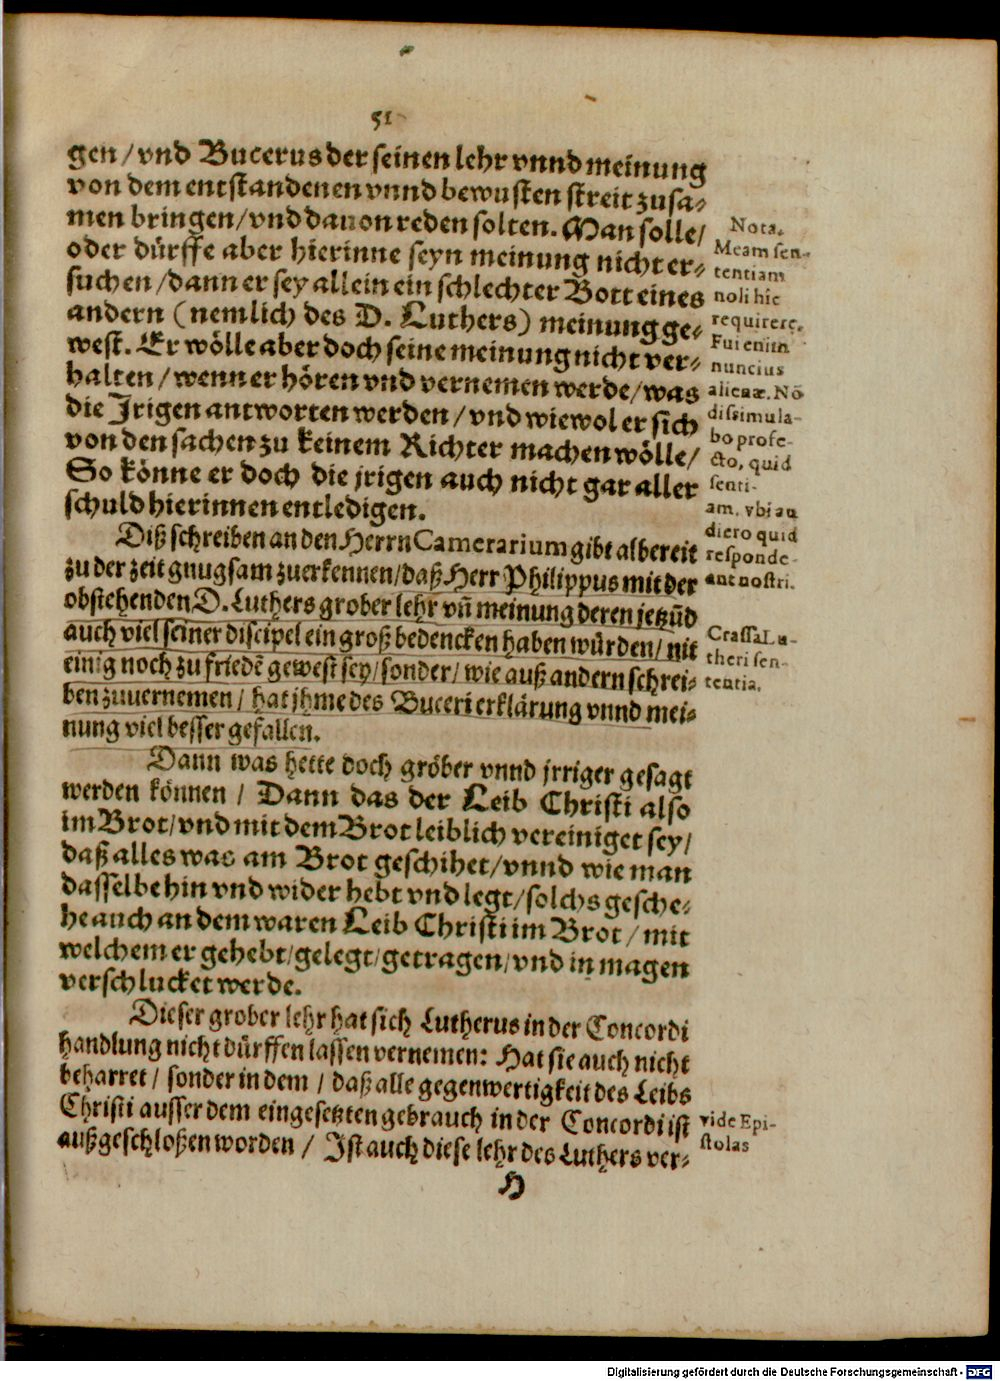 51
gen / vnd Bucerus der seinen lehr vnnd meinung
von dem entstandenen vnnd bewusten streit zusa⸗
men bringen / vnd dauon reden solten. Man solle /
oder dürffe aber hierinne seyn meinung nicht er⸗
suchen / dann er sey allein ein schlechter Bott eines
andern (nemlich des D. Luthers) meinung ge⸗
west. Er wölle aber doch seine meinung nicht ver⸗
halten / wenn er hören vnd vernemen werde / was
die Jrigen antworten werden / vnd wiewol er sich
von den sachen zu keinem Richter machen wölle /
So könne er doch die jrigen auch nicht gar aller
schuld hierinnen entledigen.
Nota.
Meam sen-
tentiam
noli hîc
requirere.
Fui enim
nuncius
alienæ. Nō
dissimula-
bo profe-
cto, quid
senti-
am, vbi au
diero quid
responde-
ant nostri.
Diß schreiben an den Herrn Camerarium gibt albereit
zu der zeit gnugsam zuerkennen / daß Herr Philippus mit der
obstehenden D. Luthers grober lehr vñ meinung deren jetzūd
auch viel seiner discipel ein groß bedencken haben würden / nit
einig noch zu friedē gewest sey / sonder / wie auß andern schrei⸗
ben zuuernemen / hat jhme des Buceri erklärung vnnd mei⸗
nung viel besser gefallen.
Crassa Lu-
theri sen-
tentia.
Dann was hette doch gröber vnnd jrriger gesagt
werden können / Dann das der Leib Christi also
im Brot / vnd mit dem Brot leiblich vereiniget sey /
daß alles was am Brot geschihet / vnnd wie man
dasselbe hin vnd wider hebt vnd legt / solchs gesche⸗
he auch an dem waren Leib Christi im Brot / mit
welchem er gehebt / gelegt / getragen / vnd in magen
verschlucket werde.
Dieser grober lehr hat sich Lutherus in der Concordi
handlung nicht dürffen lassen vernemen: Hat sie auch nicht
beharret / sonder in dem / daß alle gegenwertigkeit des Leibs
Christi ausser dem eingesetzten gebrauch in der Concordi ist
außgeschloßen worden / Jst auch diese lehr des Luthers ver⸗
vide Epi-
stolas
H
Digitalisierung gefördert durch die Deutsche Forschungsgemeinschaft - DFG